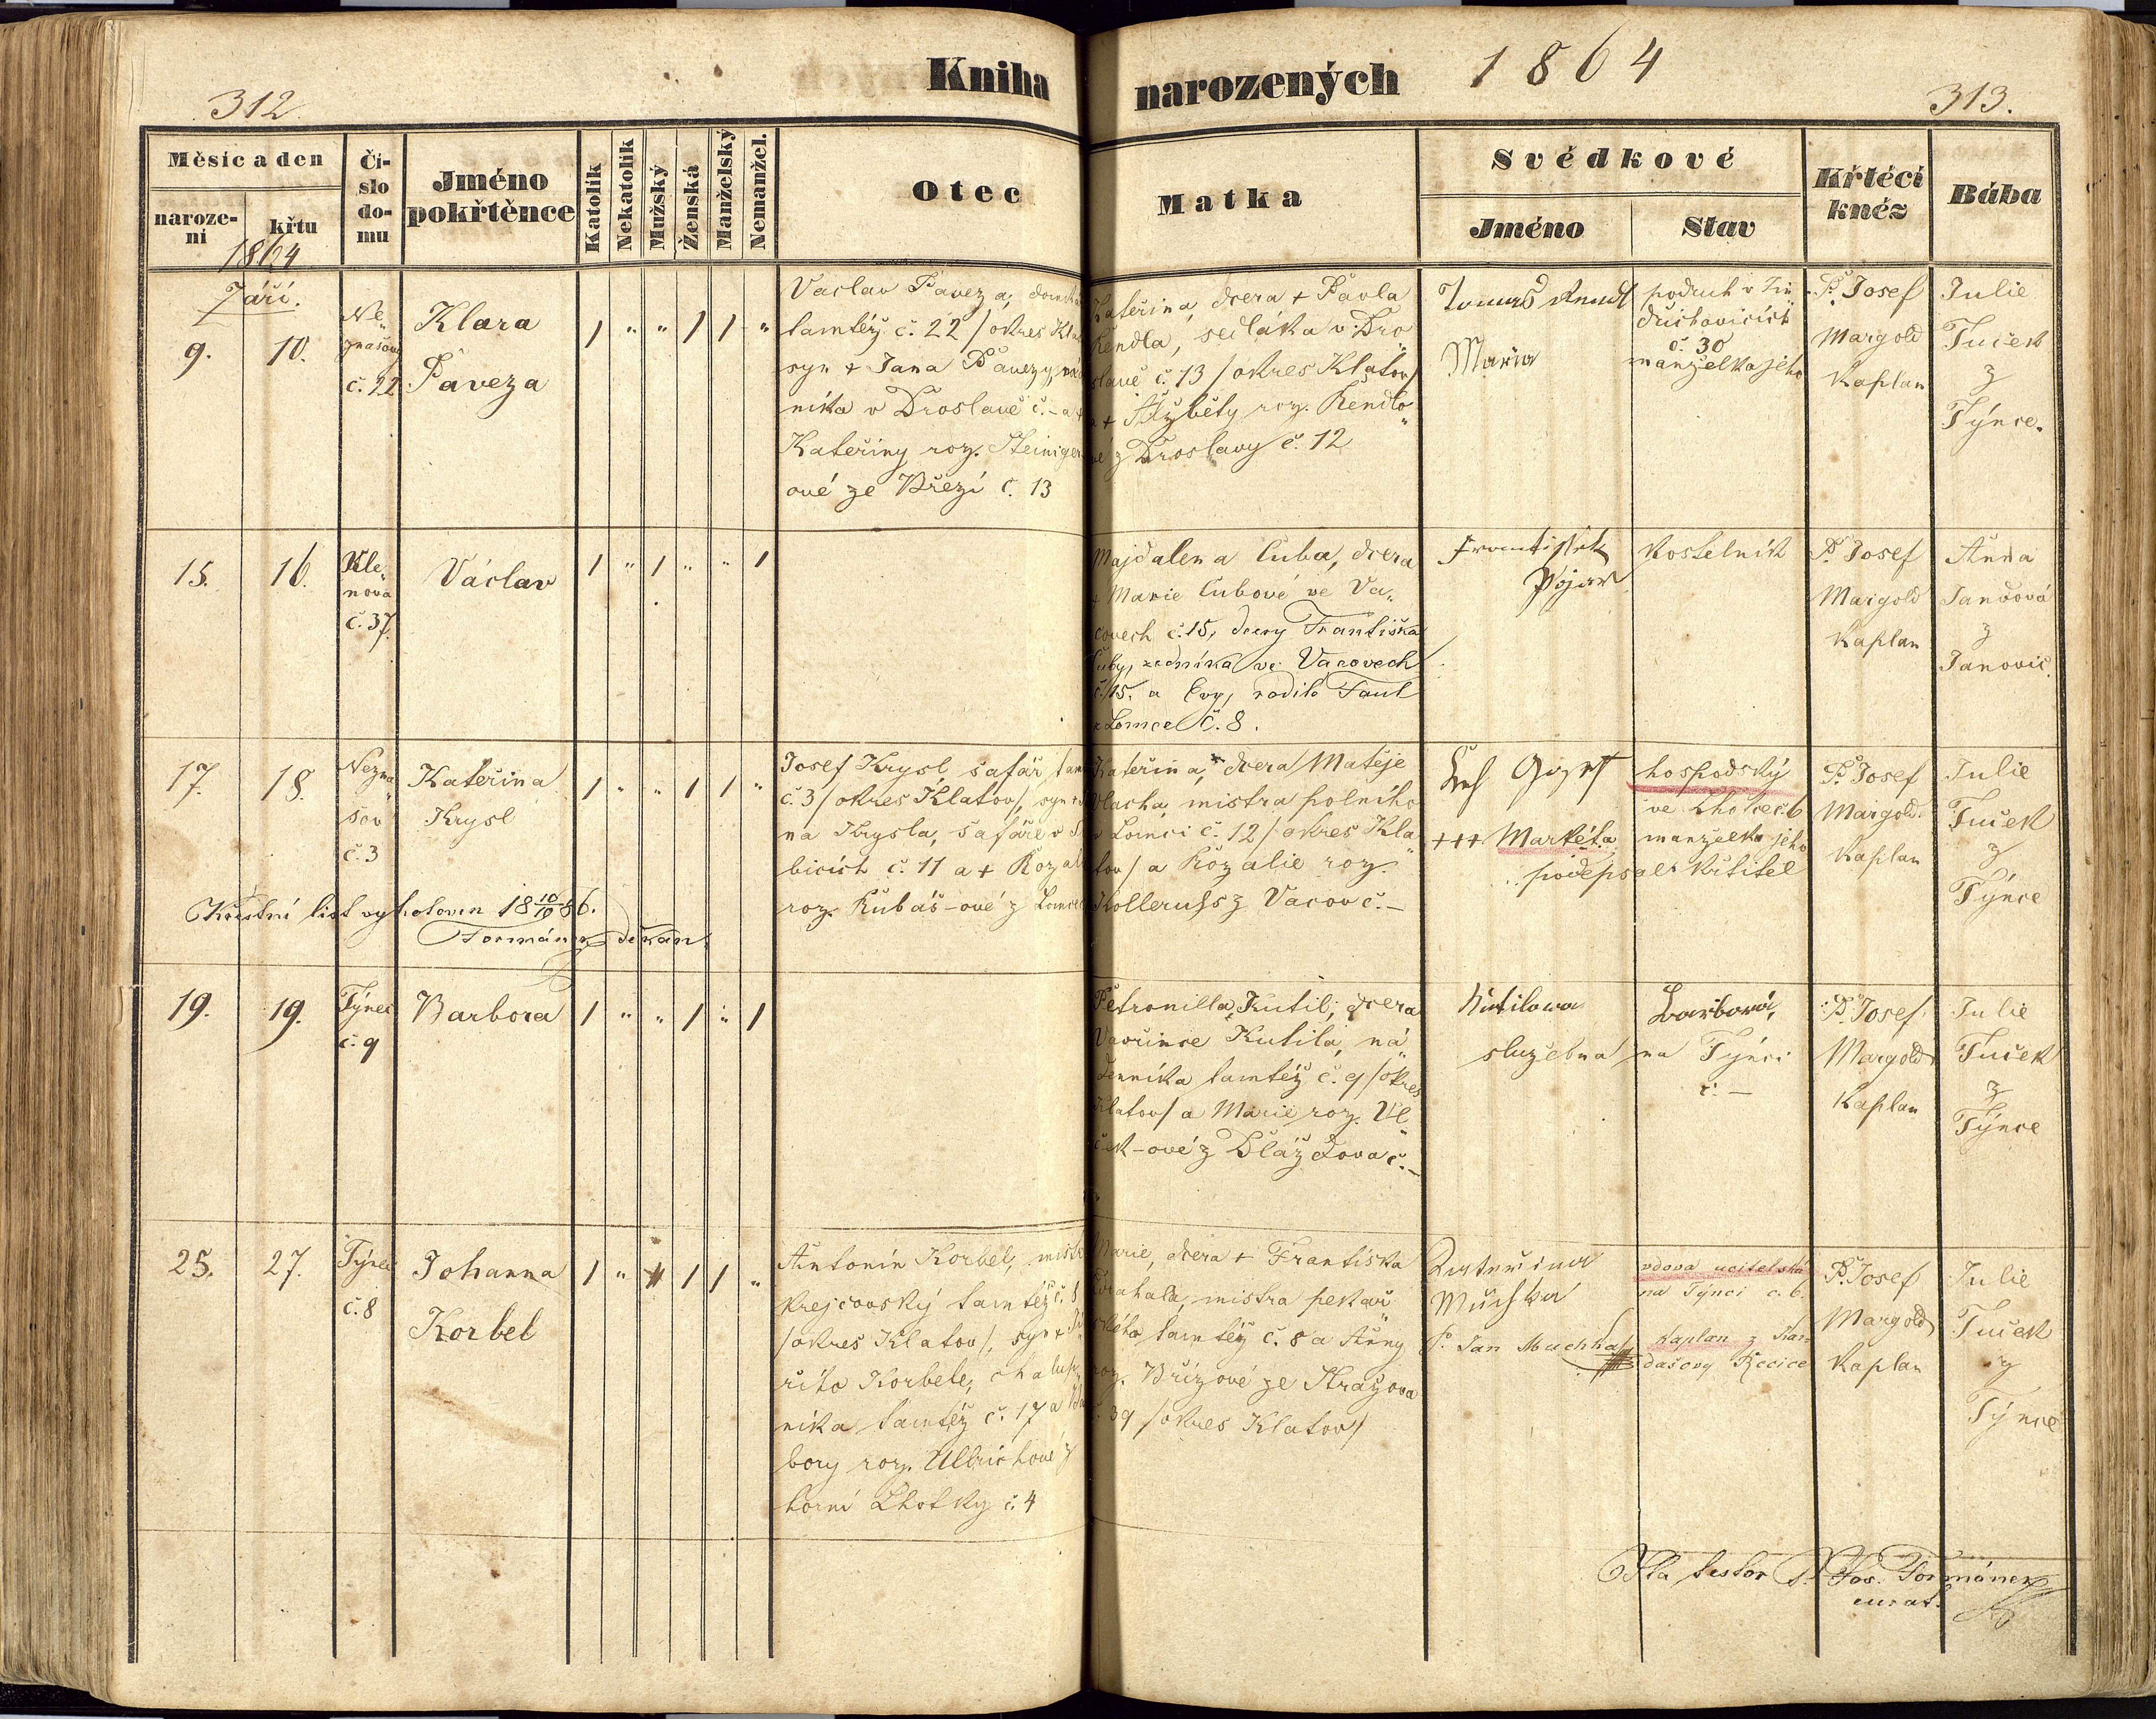 312.
Kniha
narozených
1864
313.
Měsíc a den
naroze-
ní
křtu
Čí-
slo
do-
mu
Jméno
pokřtěnce
Katolík
Nekatolík
Mužský
Ženská
Manželský
Nemanžel.
Otec
Matka
Svědkové
Jméno
Stav
Křtící
kněz
Bába
1864
Září.
9.
10.
Ne„
znašovy
č. 22
Klara
Paveza
1 „ „ 1 1 „
Vaclav Paveza,
tamtéž č. 22 /okres
syn + Jana Pavezy,
níka v Droslavě č. – a +
Kateřiny roz. Steiniger
ové ze Březí č. 13
Kateřina, dcera + Pavla
Rendla, sedláka v Dro„
slavě č. 13 /okres Klatov/
a + Alžběty roz. Rendlo„
vé z Droslavy č. 12
Tomas Rendl
Maria
podruh v
č. 30
manželka jeho
P. Josef
Margold
Kaplan
Julie
Tuček
z
Týnce.
15.
16.
Kle„
nová
č. 37.
Václav
1 „ 1 „ „ 1
Majdalena Cuba, dcera
+ Marie Cubové ve Va„
covech č. 15, dcery Františka
Cuby, zedníka ve Vacovech
č. 15. a Evy, rodilé Faul
z Lomce č. 8.
Frantisstek
Pojar
Kostelník
P. Josef
Margold
Kaplan
Anna
Jandová
z
Janovic.
17.
18.
Nezna„
šov
č. 3
Kateřina
Krysl
1 „ „ 1 1 „
Josef Krysl, šafář, tam
č. 3 /okres Klatov/, syn +
na Krysla, šafáře v
bicích č. 11 a + Rozal
roz. Kubáš–ové z Lomce
Kateřina, dcera Matěje
Vlacha, mistra polního
v Lomci č. 12 /okres Kla„
tov/ a Rozalie roz.
Kolleruss z Vacov č. –
+++ Markéta
hospodský
ve Lhotce č. 6
manželka jeho
podepsal Křtitel
P. Josef
Margold
Kaplan
Julie
Tuček
z
Týnce
Křestní list vyhotoven 18 10/10 86.
Formánek děkan.
19.
19.
Týnec
č. 9
Barbora
1 „ „ 1 „ 1
Petronilla Kutil, dcera
Vavřince Kutila, ná„
denníka tamtéž č. 9 /okres
Klatov/ a Marie roz. Vl
ček–ové z Dlažďova č. –
Kutilowa
služebná
Barbora,
na Týnci
č. –
P. Josef
Margold
Kaplan
Julie
Tuček
z
Týnce
25.
27.
Týnec
č. 8
Johanna
Korbel
1 „ 1 1 „
Antonín Korbel, mistr
krejčovský tamtéž č. 8
/okres Klatov/, syn + Ji
řího Korbele, chalup
níka tamtéž č. 17 a Ba
bory roz. Ullrichové z
horní Lhotky č. 4
Marie, dcera + Františka
Drahala, mistra pekař
ského tamtéž č. 8 a Anny
roz. Břízové ze Stražova
č. 39 /okres Klatov/
Kateřina
Muchka
P. Jan Muchka
vdova učitelská
na Týnci č. 6.
Kaplan z Kar„
dašovy Řečice
P. Josef
Margold
Kaplan
Julie
Tuček
z
Týnce
Ita testor P. Jos. Formánek
curat.